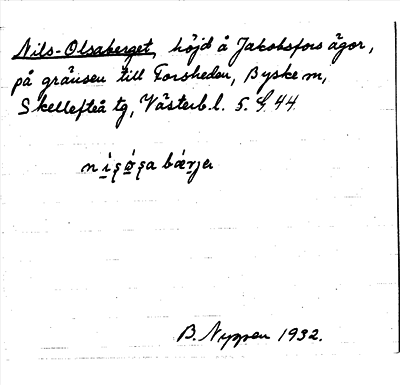 Nils-Olsaberget, höjd å Jakobsfors ägor,
på gränsen till Forsheden, Byske sn,
Skellefteå tg, Västerb. l. 5. S. 44
B. Nyppen 1932.